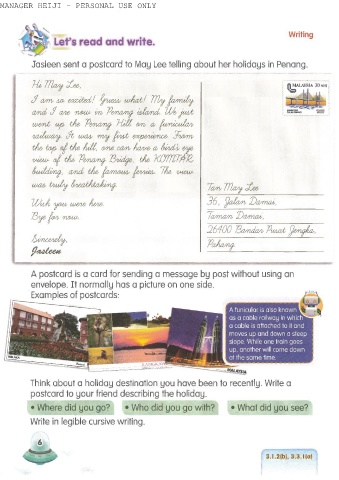 MANAGER HEIJI - PERSONAL USE ONLY
Writing
Let's read and write.
Jasleen sent a postcard to May Lee telling about her holidays in Penang.
Hi May Lee,
I am so excited! Guess what! My family
and I are now in Penang island. We just
went up the Penang Hill on a funicular
railway. It was my first experience. From
the top of the hill, one can have a bird's eye
view of the Penang Bridge, the KOMTAR
building, and the famous ferries. The view
was truly breathtaking.
Wish you were here.
Bye for now.
Sincerely,
Jasleen
MALAYSIA 30 sen
Tan May Lee
36, Jalan Damai,
Taman Damai,
26400 Bandar Pusat Jengka,
Pahang.
A postcard is a card for sending a message by post without using an
envelope. It normally has a picture on one side.
Examples of postcards:
MALAYSIA
A funicular is also known
as a cable railway in which
a cable is attached to it and
moves up and down a steep
slope. While one train goes
up, another will come down
at the same time.
Think about a holiday destination you have been to recently. Write a
postcard to your friend describing the holiday.
• Where did you go?
• Who did you go with?
• What did you see?
Write in legible cursive writing.
6
3.1.2(b), 3.3.1(a)